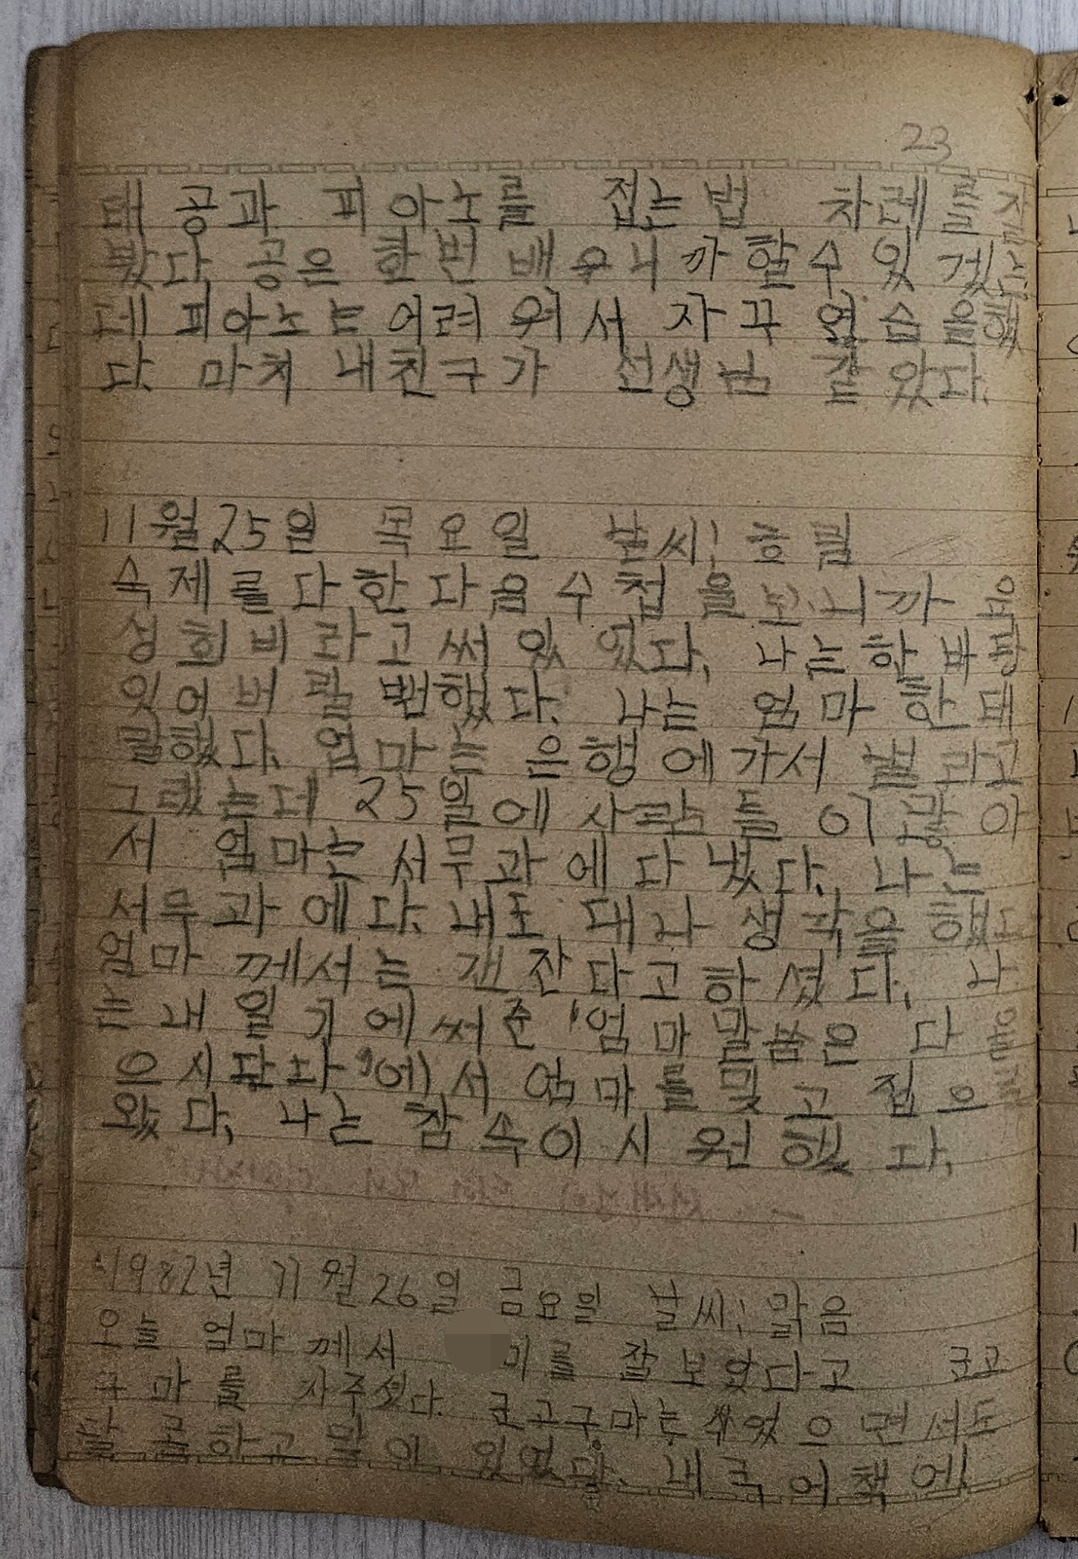 23
태 공과 피아노를 접는법 차례를 지
봤다. 공은 한번 배우니까할수 있겠는
데 피아노는 어려워서 자꾸 연습을했
다. 마처 내친구가 선생님 같았다.
11월25일 목요일 날씨! 흐림
숙제를다한다음수첩을보니까 육
성회비라고써있었다. 나는한바탕
잇어버릴뻔했다. 나는 엄마한태
말했다. 엄마는 은행에가서 낼라고
그랬는데 25일에사람들이많아
서 엄마는서무과에다냈다. 나는
서무과에다.내도 대나 생각을했다
엄마께서는갠잔다고하셨다. 나
는내일기에써준'엄마말씀은 다
으시단다'에서엄마를믿고집으
왔다, 나는참속이시원했다.
1982년 11월26일 금요일 날씨! 맑음
오늘 엄마께서 미를 잘보았다고 군고
구마를 사주셨다. 군고구마는 쑤었으면서도
달콤하고 말이 있었다. 내국어책에!